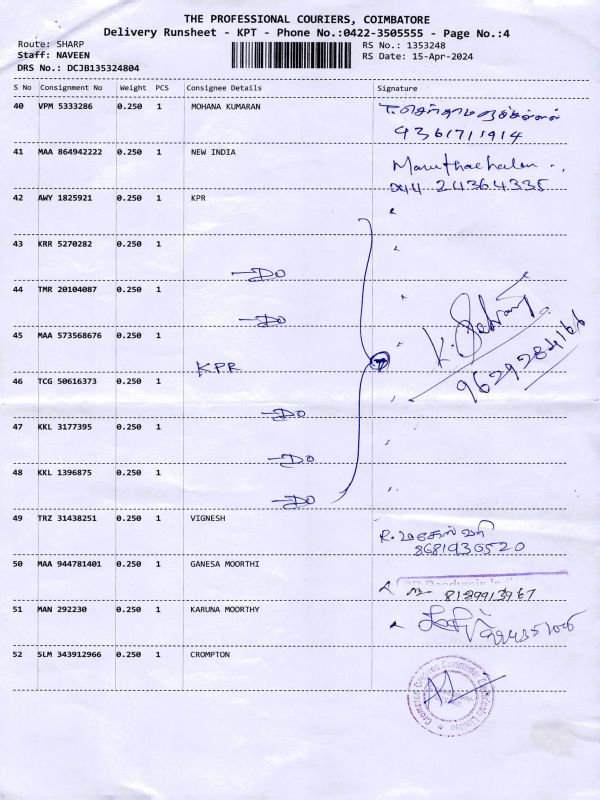 THE PROFESSIONAL COURIERS, COIMBATORE
Delivery Runsheet - KPT - Phone No.:0422-3505555 - Page No.:4
Route: SHARP RS No.: 1353248
Staff: NAVEEN RS Date: 15-Apr-2024
DRS No.: DCJB135324804
S No Consignment No Weight PCS Consignee Details Signature
40 VPM 5333286 0.250 1 MOHANA KUMARAN
9361711914
41 MAA 864942222 0.250 1 NEW INDIA Maruthachalam
044 24364335
42 AWY 1825921 0.250 1 KPR "
43 KRR 5270282 0.250 1 "
Do
44 TMR 20104087 0.250 1 "
Do
45 MAA 573568676 0.250 1 "
KPR
9629284166
46 TCG 50616373 0.250 1 "
Do
47 KKL 3177395 0.250 1 "
Do
48 KKL 1396875 0.250 1 "
Do
49 TRZ 31438251 0.250 1 VIGNESH R. மகேஸ்வரி
8681930520
50 MAA 944781401 0.250 1 GANESA MOORTHI
8129913967
51 MAN 292230 0.250 1 KARUNA MOORTHY
52 SLM 343912966 0.250 1 CROMPTON
Crompton Greaves Consumer Electricals Limited